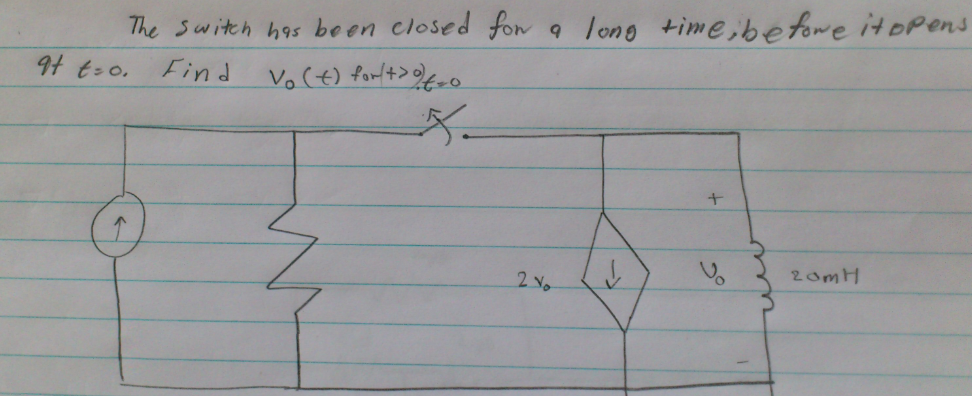 The switch has been closed for a long time, before it opens
at t=0. Find Vo(t) for(t>0) t=0
+
2 Vo
Vo
20mH
-